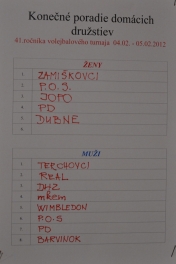 Konečné poradie domácich
družstiev
41.ročníka volejbalového turnaja 04.02. - 05.02.2012
ŽENY
1 ZAMIŠKOVCI
2 P.O.S.
3 JOPO
4 PD
5 DUBNÉ
6
MUŽI
1 TERCHOVCI
2 REAL
3
4 mkem
5 WIMBLEDON
6 P.O.S
7 PD
8 BARVINOK